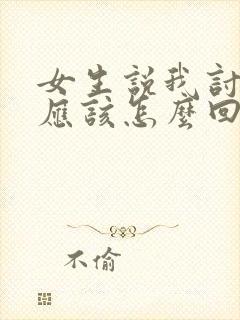 女生説我討
應該怎麼回
不偷